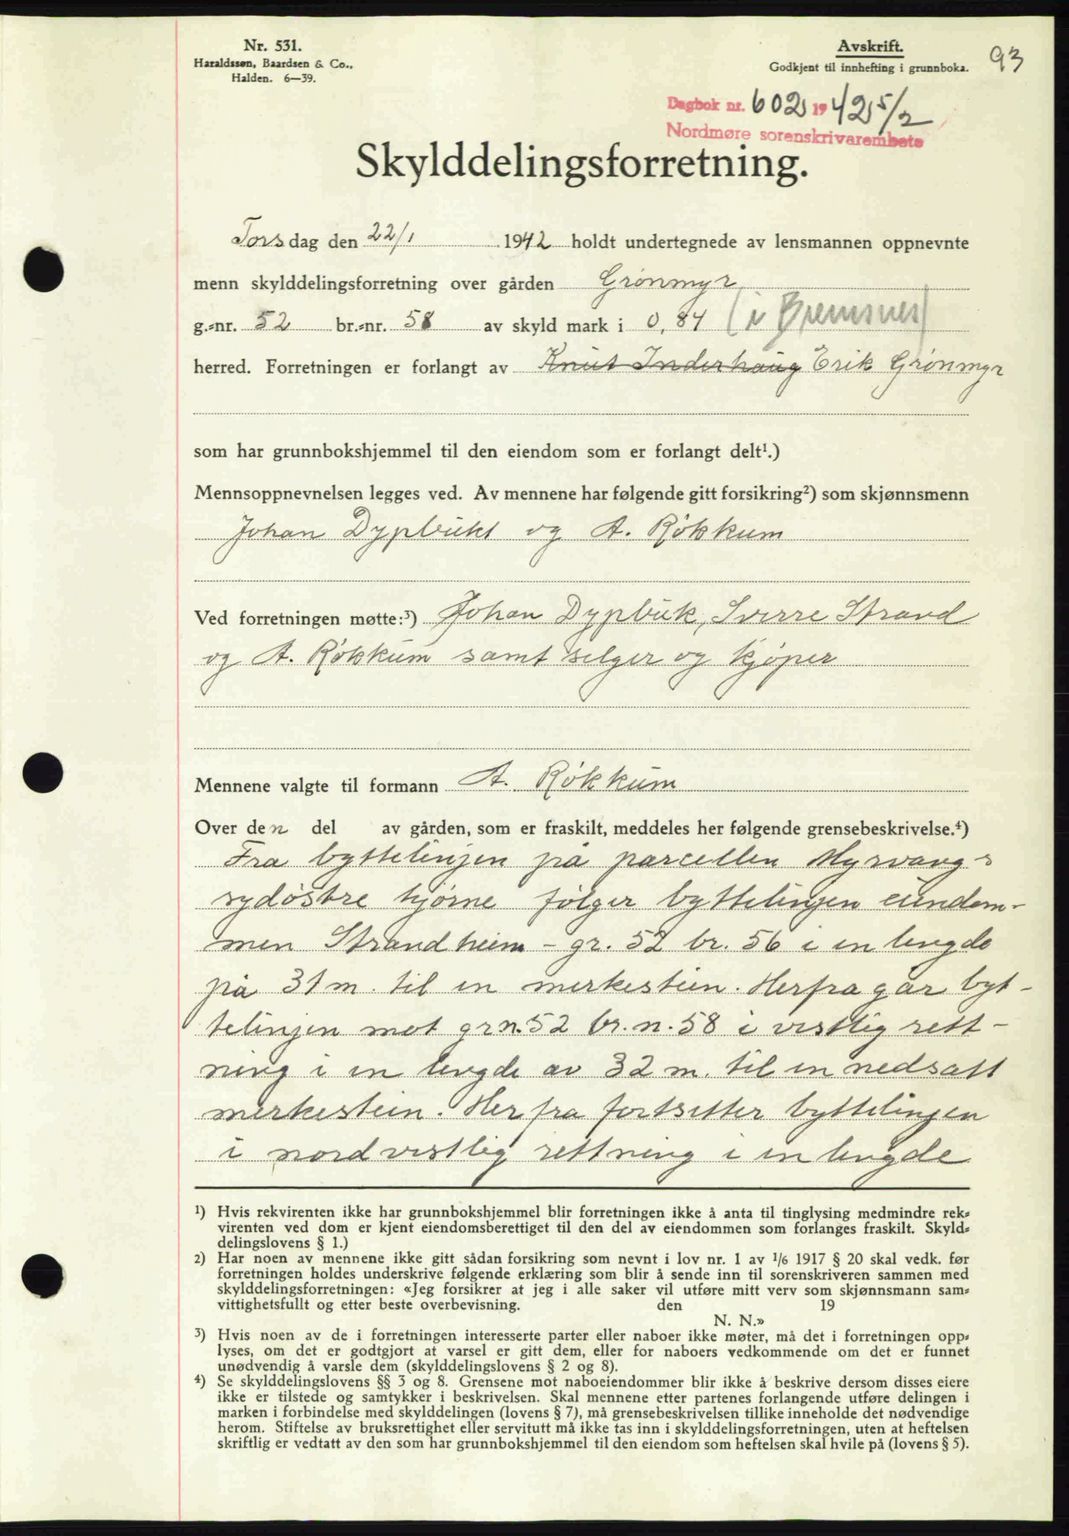 Nr. 531.
Haraldssøn, Baardsen & Co.,
Halden. 6—39.
Avskrift.
Godkjent til innhefting i grunnboka.
93
Dagbok nr. 602 1942 5/2
Nordmøre sorenskrivarembete
Skylddelingsforretning.
Torsdag den 22/1 1942 holdt undertegnede av lensmannen oppnevnte
menn skylddelingsforretning over gården Grönmyr
g.-nr. 52 br.-nr. 58 av skyld mark i 0,84 (i Bremsnes)
herred. Forretningen er forlangt av Knut Inderhaug Erik Grönmyr
som har grunnbokshjemmel til den eiendom som er forlangt delt¹.)
Mennsoppnevnelsen legges ved. Av mennene har følgende gitt forsikring²) som skjønnsmenn
Johan Dypbukt og A. Rökkum
Ved forretningen møtte:³) Johan Dypbuk, Sverre Strand
og A. Rökkum samt selger og kjøper
Mennene valgte til formann A. Rökkum
Over den del av gården, som er fraskilt, meddeles her følgende grensebeskrivelse.⁴)
Fra byttelinjen på parcellen Myrvang-s
sydöstre hjörne følger byttelinjen eiendom-
men Strandheim - gr. 52 br. 56 i en lengde
på 31 m. til en merkestein. Herfra går byt-
telinjen mot grn. 52 br. n. 58 i vestlig rett-
ning i en lengde av 32 m. til en nedsatt
merkestein. Herfra fortsetter byttelinjen
i nordvestlig rettning i en lengde
¹) Hvis rekvirenten ikke har grunnbokshjemmel blir forretningen ikke å anta til tinglysing medmindre rek-
virenten ved dom er kjent eiendomsberettiget til den del av eiendommen som forlanges fraskilt. Skyld-
delingslovens § 1.)
²) Har noen av mennene ikke gitt sådan forsikring som nevnt i lov nr. 1 av 1/6 1917 § 20 skal vedk. før
forretningen holdes underskrive følgende erklæring som blir å sende inn til sorenskriveren sammen med
skylddelingsforretningen: «Jeg forsikrer at jeg i alle saker vil utføre mitt verv som skjønnsmann sam-
vittighetsfullt og etter beste overbevisning. den 19
N. N.»
³) Hvis noen av de i forretningen interesserte parter eller naboer ikke møter, må det i forretningen opp-
lyses, om det er godtgjort at varsel er gitt dem, eller for naboers vedkommende om det er funnet
unødvendig å varsle dem (skylddelingslovens § 2 og 8).
⁴) Se skylddelingslovens §§ 3 og 8. Grensene mot naboeiendommer blir ikke å beskrive dersom disses eiere
ikke er tilstede og samtykker i beskrivelsen. Skal mennene etter partenes forlangende utføre delingen i
marken i forbindelse med skylddelingen (lovens § 7), må grensebeskrivelsen tillike inneholde det nødvendige
herom. Stiftelse av bruksrettighet eller servitutt må ikke tas inn i skylddelingsforretningen, uten at heftelsen
skriftlig er vedtatt av den som har grunnbokshjemmel til den eiendom som heftelsen skal hvile på (lovens § 5).